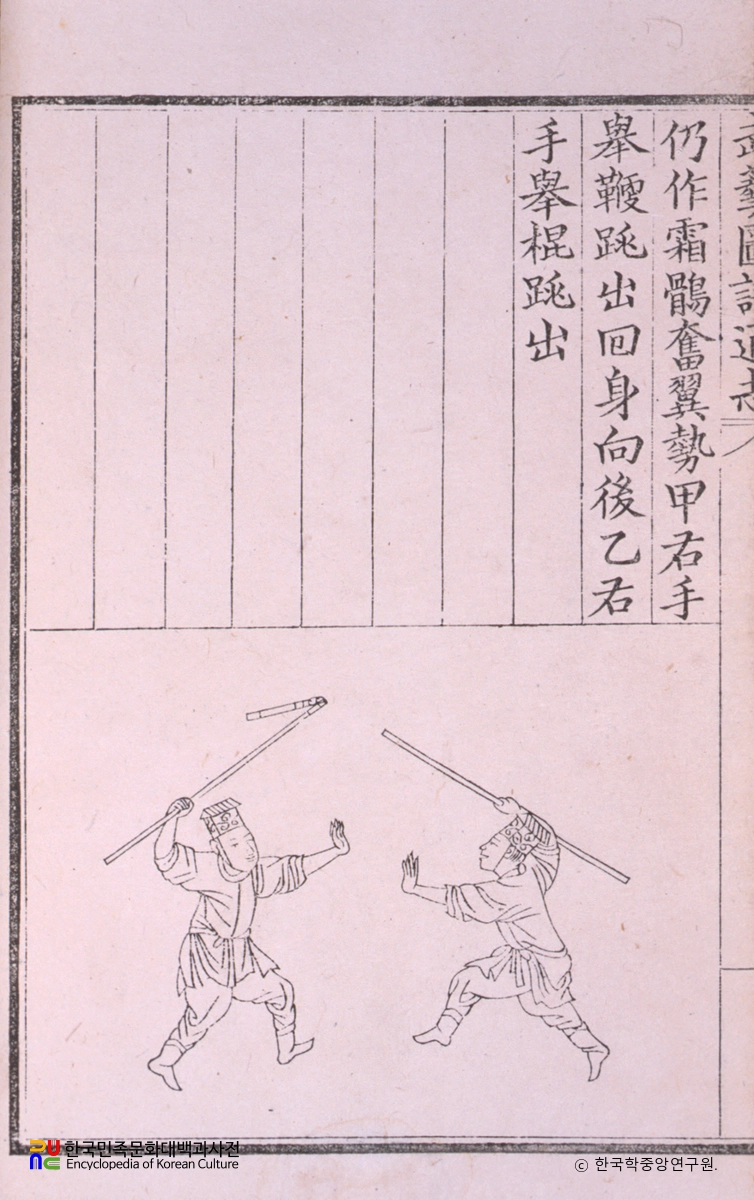 武藝圖譜通志
仍作霜鶻奮翼勢甲右手
舉鞭跳出回身向後乙右
手舉棍跳出
한국민족문화대백과사전
Encyclopedia of Korean Culture
ⓒ 한국학중앙연구원.